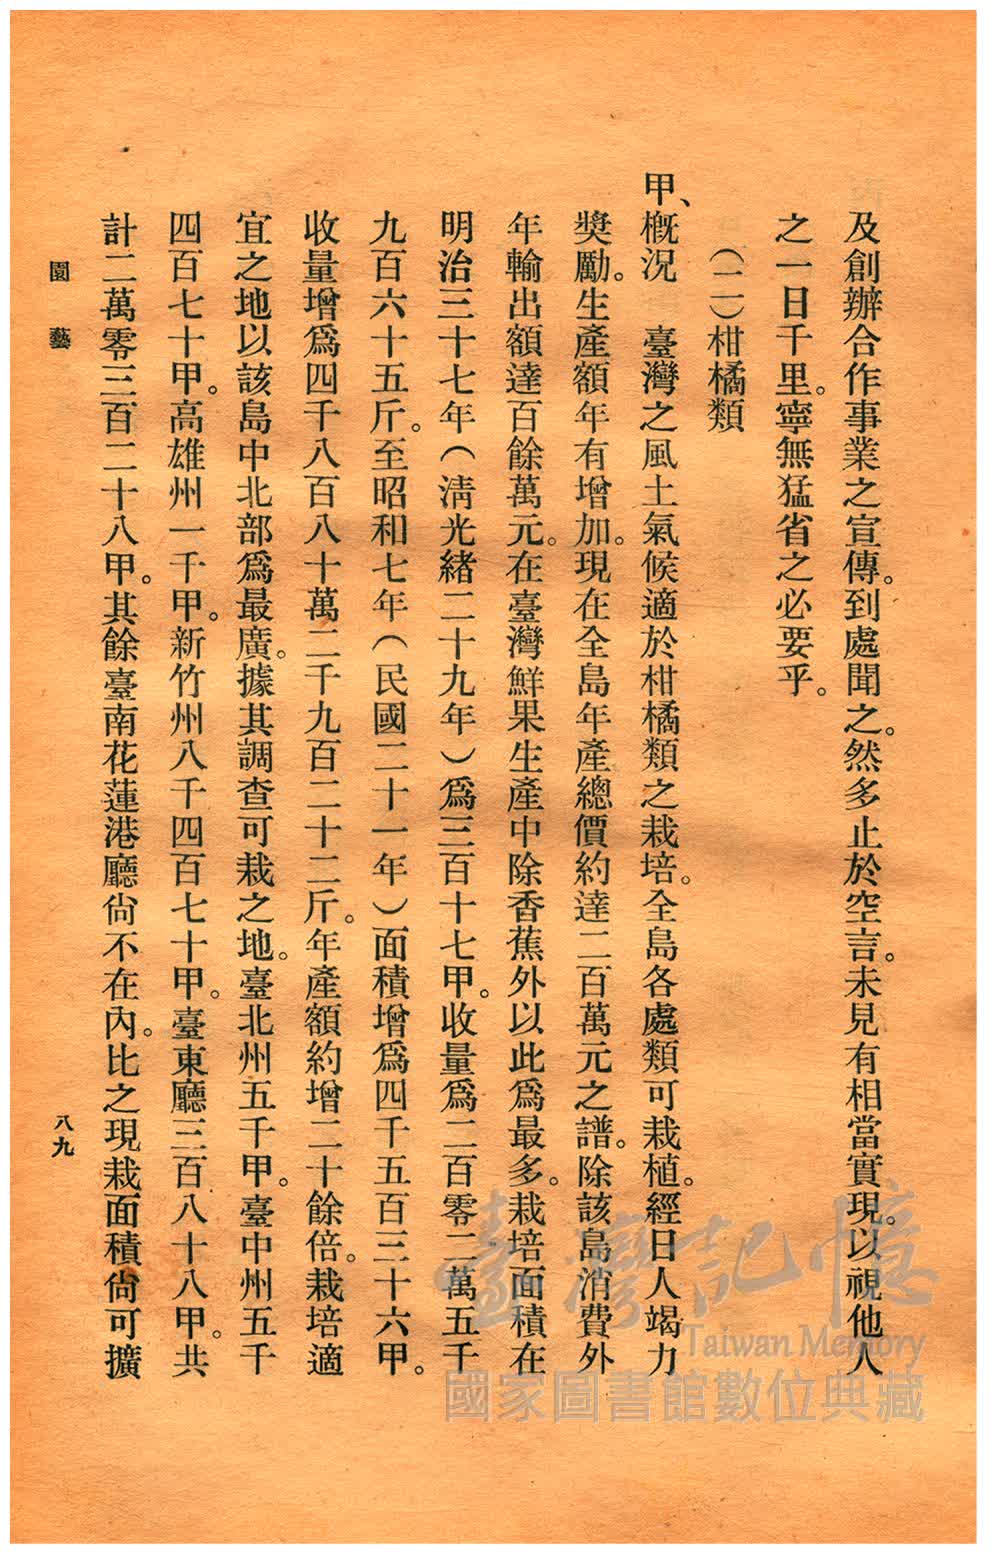 及創辦合作事業之宣傳。到處聞之。然多止於空言。未見有相當實現。以視他人
之一日千里。寧無猛省之必要乎。
(二)柑橘類
甲、概況　臺灣之風土氣候適於柑橘類之栽培。全島各處類可栽植。經日人竭力
獎勵。生產額年有增加。現在全島年產總價約達二百萬元之譜。除該島消費外
年輸出額達百餘萬元。在臺灣鮮果生產中除香蕉外以此爲最多。栽培面積在
明治三十七年(淸光緒二十九年)爲三百十七甲。收量爲二百零二萬五千
九百六十五斤。至昭和七年(民國二十一年)面積增爲四千五百三十六甲。
收量增爲四千八百八十萬二千九百二十二斤。年產額約增二十餘倍。栽培適
宜之地以該島中北部爲最廣。據其調查可栽之地。臺北州五千甲。臺中州五千
四百七十甲。高雄州一千甲。新竹州八千四百七十甲。臺東廳三百八十八甲。共
計二萬零三百二十八甲。其餘臺南花蓮港廳尙不在內。比之現栽面積尙可擴
園藝
八九
臺灣記憶
Taiwan Memory
國家圖書館數位典藏